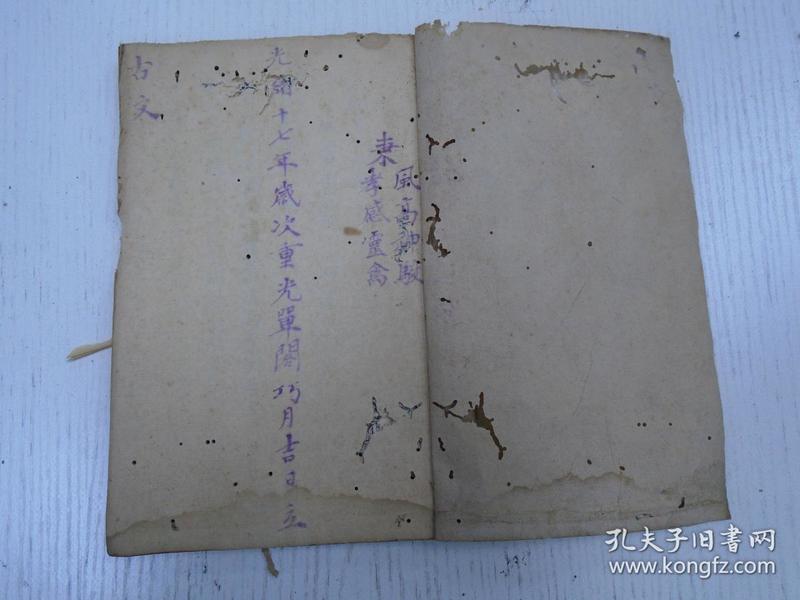 風高神駿
孝感靈禽
光緒十七年歲次重光單閼巧月吉日立
古文
孔夫子旧書网
www.kongfz.com